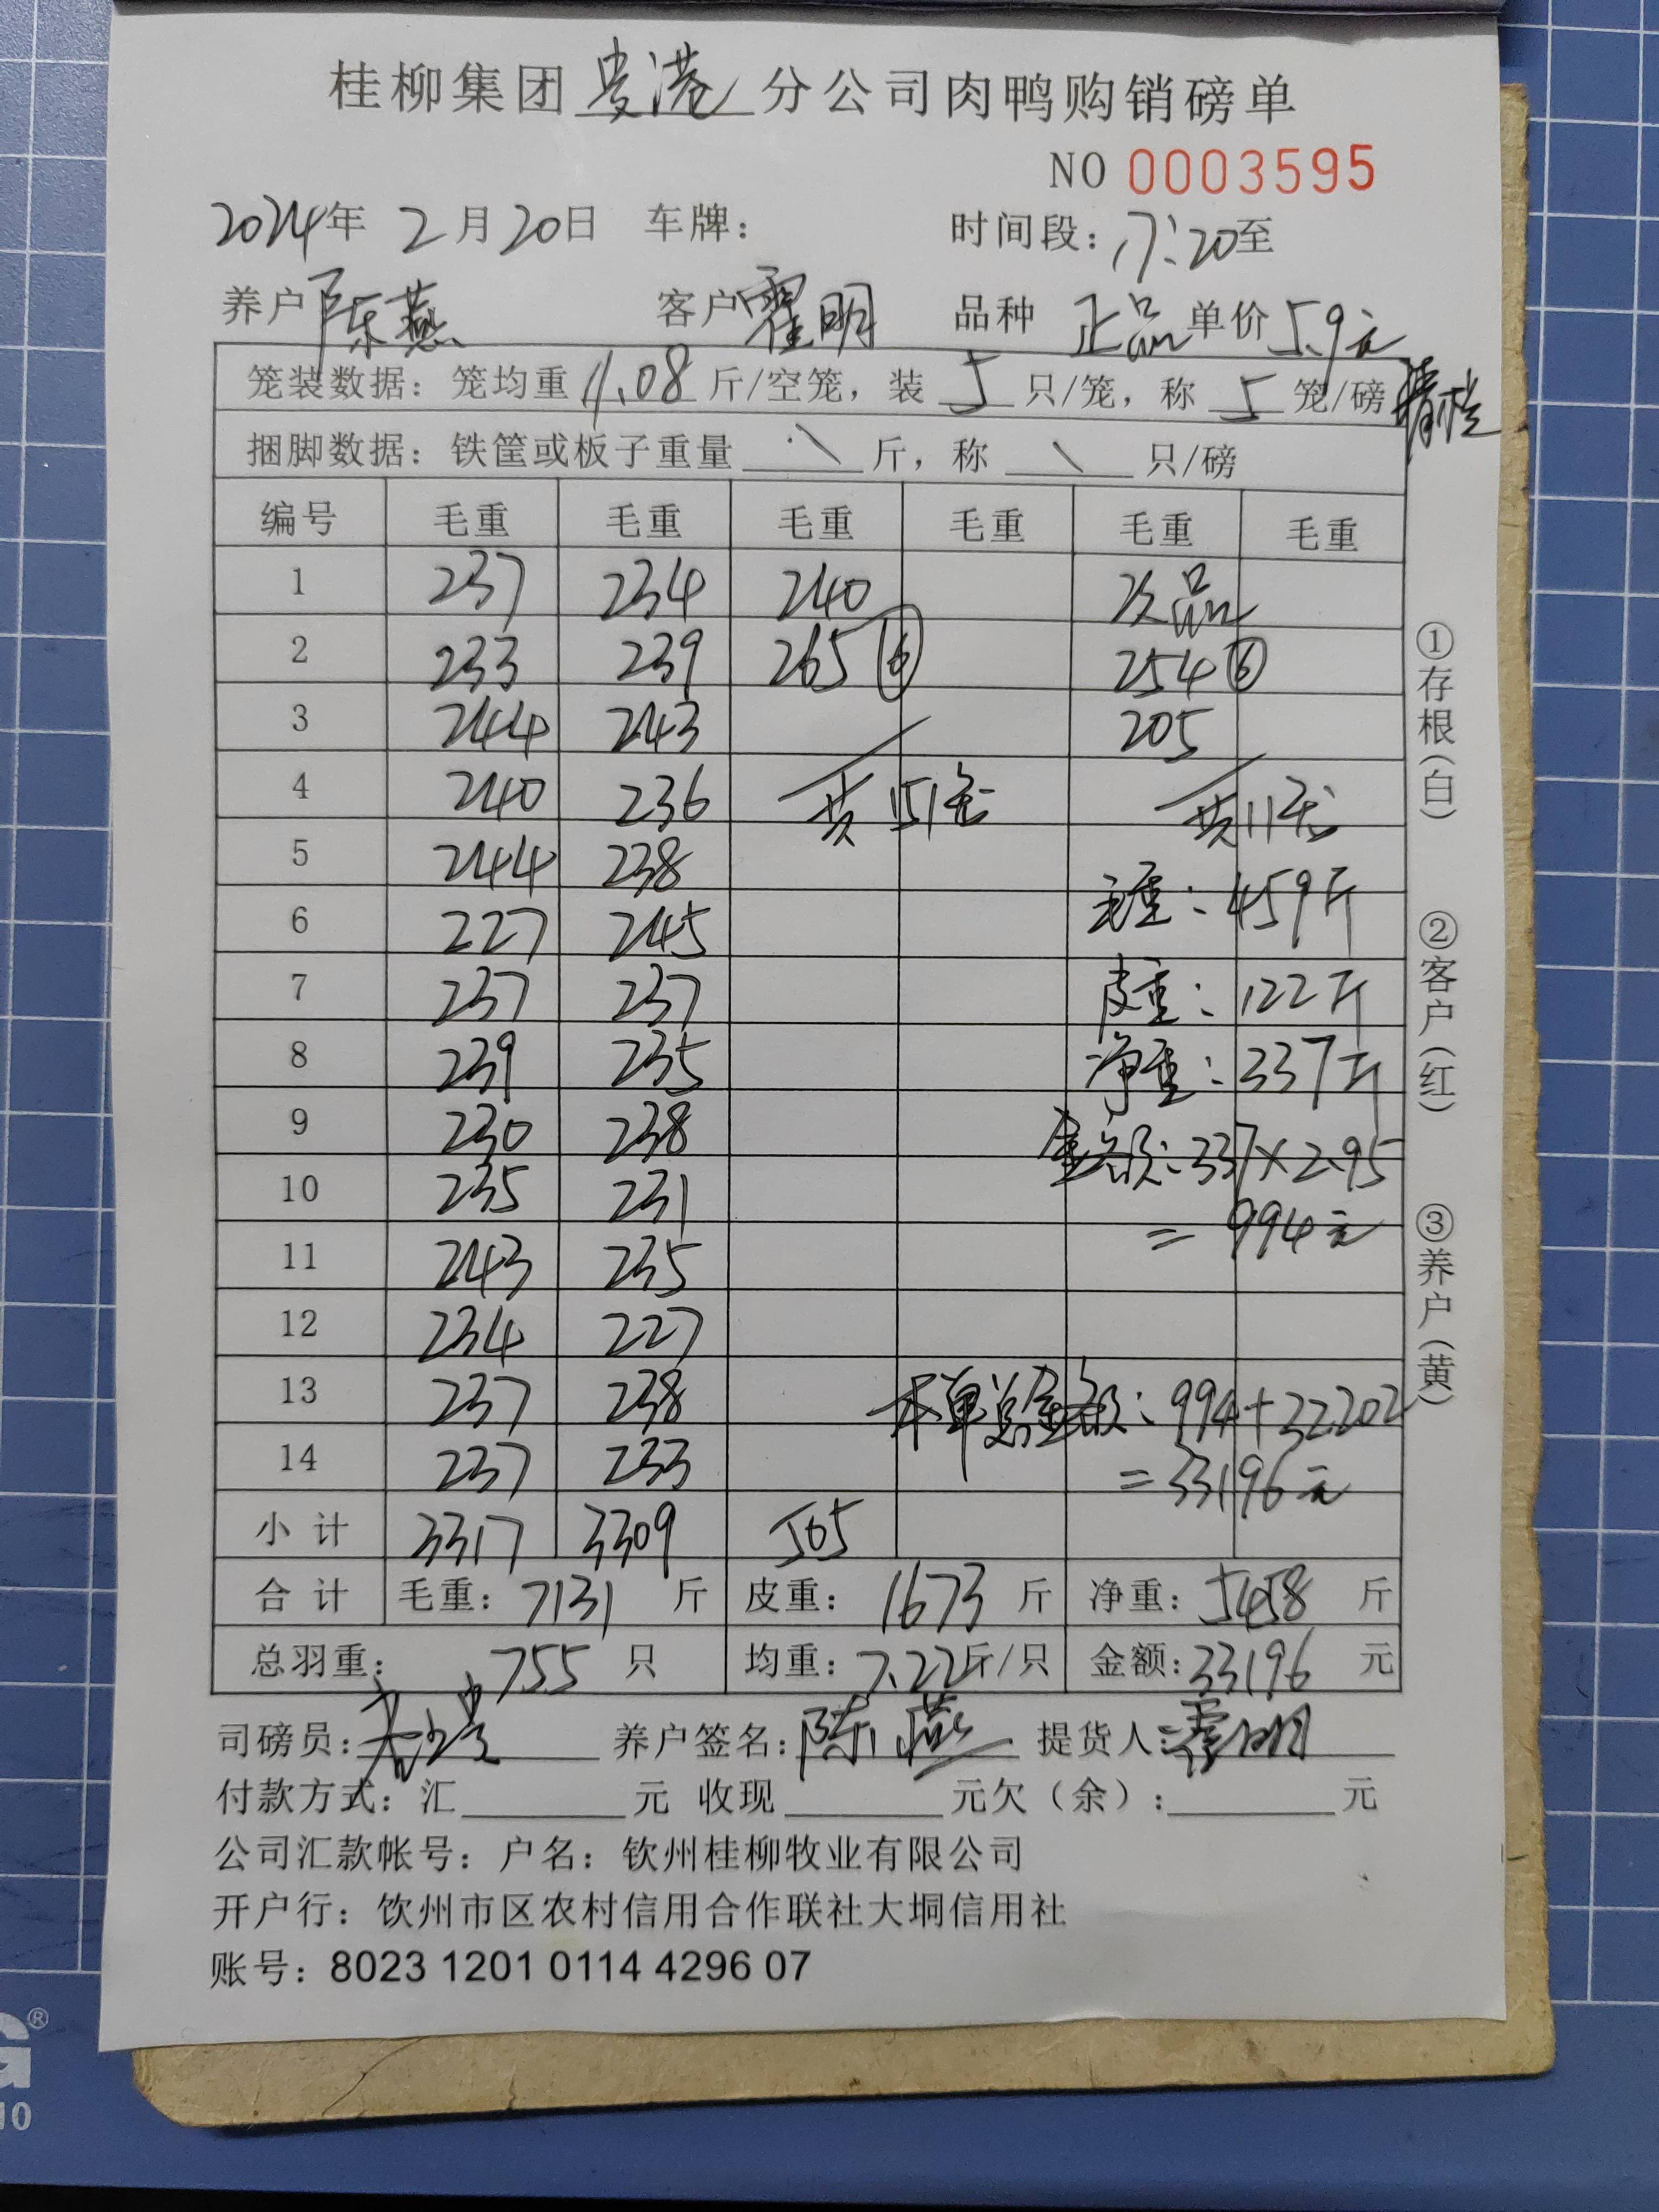 桂柳集团贵港分公司肉鸭购销磅单
NO 0003595
2024年 2月20日 车牌: 时间段:17:20至
养户 陈燕 客户 霍明 品种 正品 单价5.9元
笼装数据: 笼均重 11.08 斤/空笼, 装 5 只/笼, 称 5 笼/磅
捆脚数据: 铁筐或板子重量 \ 斤, 称 \ 只/磅
编号 毛重 毛重 毛重 毛重 毛重 毛重
1 237 234 240 次品
2 233 239 265⑥ 254⑥
3 244 243 205
4 240 236 共151笼 共11笼
5 244 238
毛重:459斤
6 227 245
7 237 237 皮重:122斤
8 239 235 净重:337斤
9 230 238 金额:337×2.95
10 235 231 =994元
11 243 235
12 234 227
13 237 238 本单总金额:994+32202
14 237 233 =33196元
小计 3317 3309 505
合计 毛重: 7131 斤 皮重: 1673 斤 净重: 5458 斤
总羽重: 755 只 均重: 7.22斤/只 金额:33196 元
司磅员: 养户签名:陈燕 提货人:霍明
付款方式: 汇 元 收现 元欠(余): 元
公司汇款帐号: 户名: 钦州桂柳牧业有限公司
开户行: 饮州市区农村信用合作联社大垌信用社
账号: 8023 1201 0114 4296 07
①存根(白)
②客户(红)
③养户(黄)
G®
10